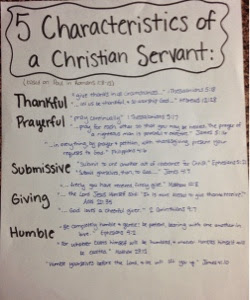 5 Characteristics of
a Christian Servant:
(based on Paul in Romans
Thankful "give thanks in all circumstances..." 1 Thessalonians 5:18
"... let us be thankful & so worship God..." Hebrews 12:28
Prayerful "pray continually" 1 Thessalonians 5:17
"... pray for each other so that you may be healed. The prayer of
a righteous man is powerful & effective." James 5:16
"... in everything, by prayer & petition, with thanksgiving, present your
requests to God." Philippians 4:6
Submissive "Submit to one another out of reverence for Christ." Ephesians 5:21
"Submit yourselves, then, to God..." James 4:7
Giving "... freely you have received, freely give." Matthew 10:8
"... the Lord Jesus himself said: 'It is more blessed to give than to receive.'"
Acts 20:35
"... God loves a cheerful giver." 2 Corinthians 9:7
Humble "Be completely humble & gentle; be patient, bearing with one another in
love." Ephesians 4:2
"For whoever exalts himself will be humbled, & whoever humbles himself will
be exalted." Matthew 23:12
"Humble yourselves before the Lord, & he will lift you up." James 4:10